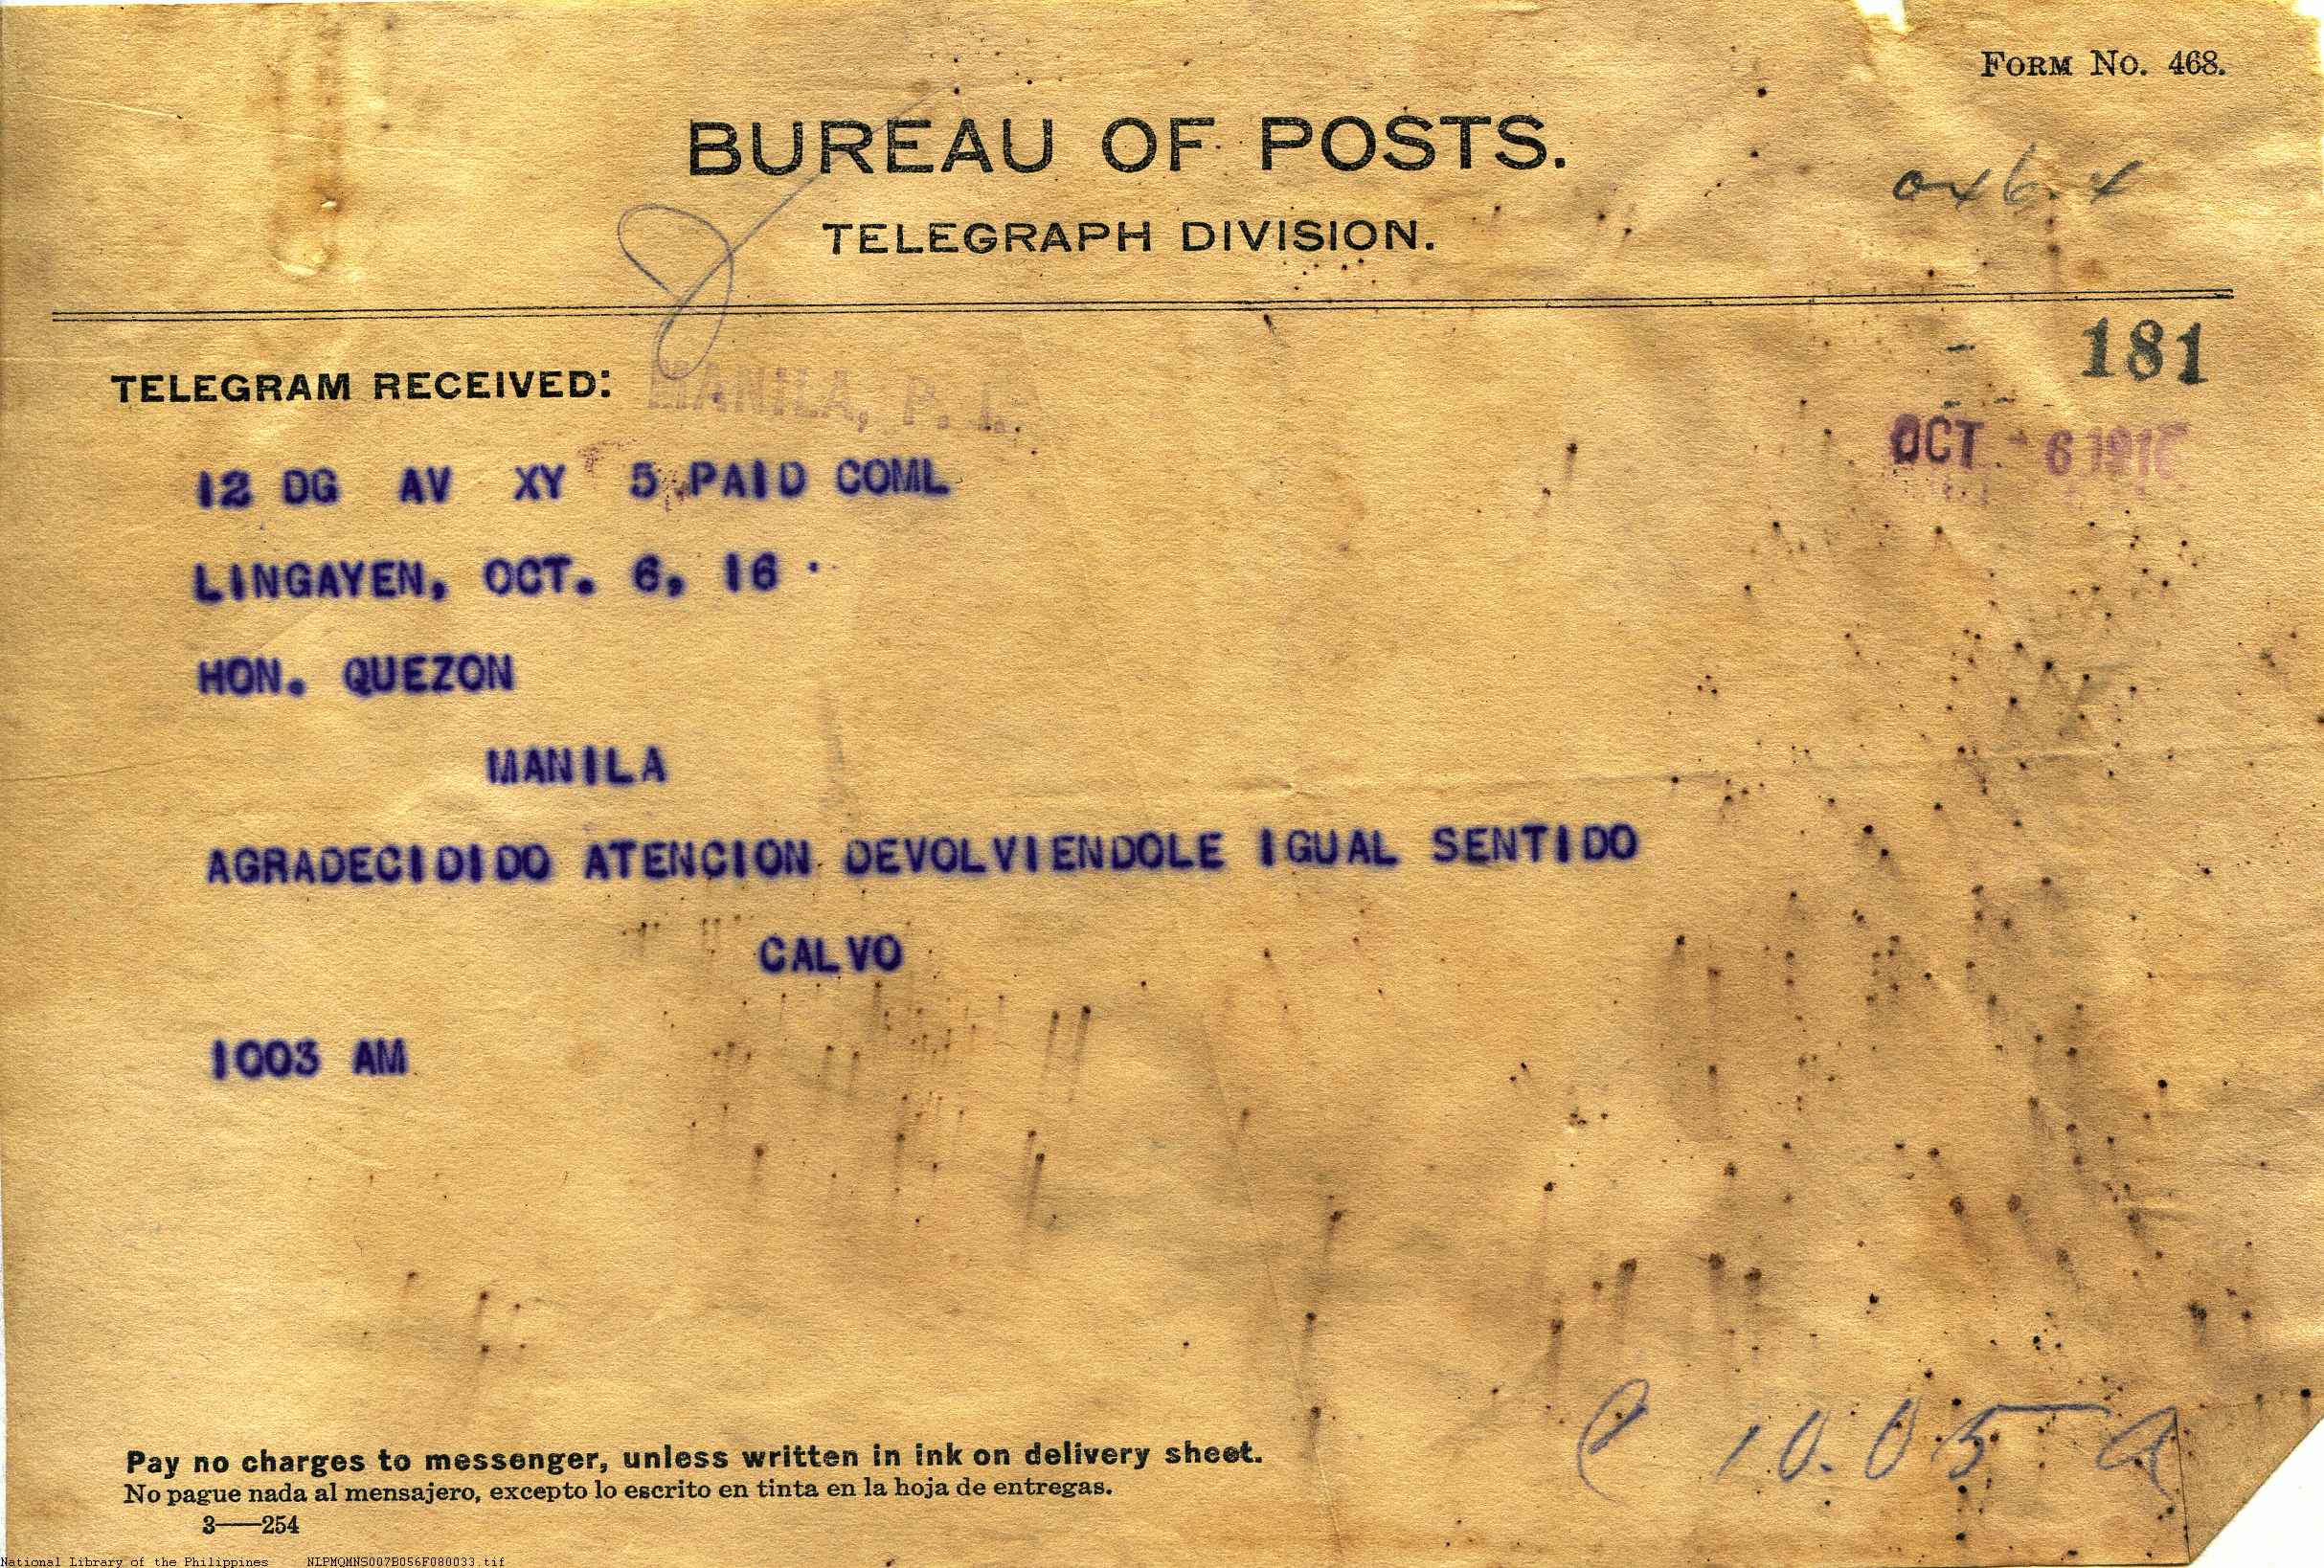 FORM NO. 468.
BUREAU OF POSTS.
TELEGRAPH DIVISION.
181
TELEGRAM RECEIVED:
MANILA, P. I.
OCT - 6 191
12 DG AV XY 5 PAID COML
LINGAYEN, OCT. 6, 16
HON. QUEZON
MANILA
AGRADECIDIDO ATENCION DEVOLVIENDOLE IGUAL SENTIDO
CALVO
1003 AM
10.05 a
Pay no charges to messenger, unless written in ink on delivery sheet.
No pague nada al mensajero, excepto lo escrito en tinta en la hoja de entregas.
3——254
National Library of the Philippines NLPMQMNS007B056F080033.tif